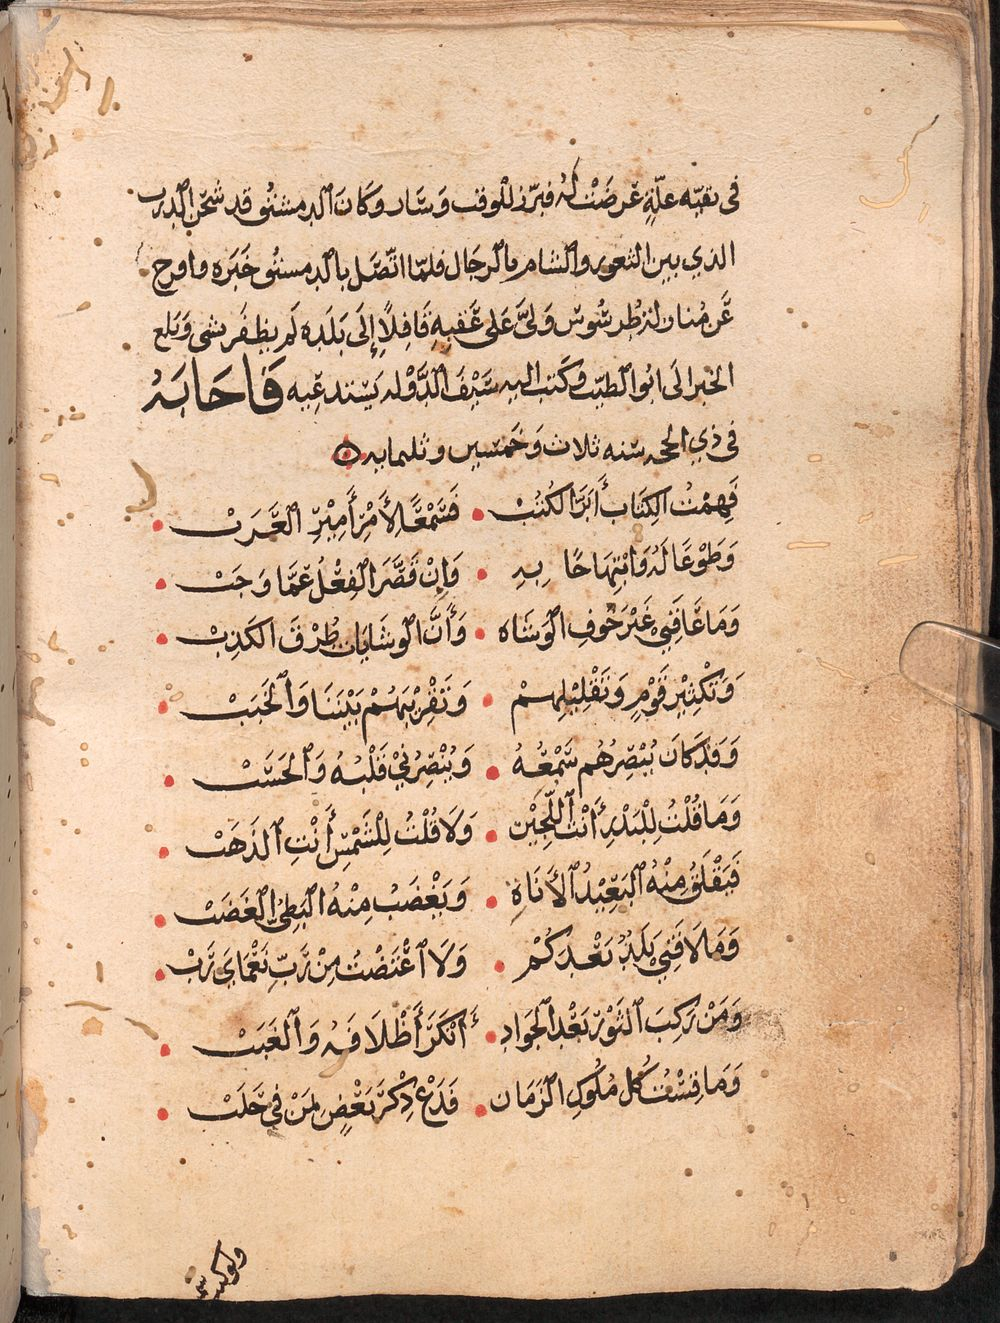 في بقيه علّةٍ عرضَتْ له فبرز للوقت وسَار وكانَ الدمستق قد شحن الدرب
الذي بين الثغور والشام بالرجال فلمّا اتّصل بالدمستق خبره وافرج
عَن منازلة طرسُوسَ وَلىَّ عَلى عَقبهِ قَافِلاً إلَى بَلَدِه لَم يظفَر بشى وَبلغ
الخبر الَى ابو الطيّب وكتب اليه سَيْفَ الدَّوْله يَستدعِيه فَاجَابَهُ
في ذي الحجه سَنه ثلاث وَخمَسين وثلثمايه
فَهِمْتُ الكِتَابَ أَبَرَّ الكُتُبْ • فَسَمْعًا لأَمْرِ أَمِيْرِ العَرَبْ •
وَطَوْعًا لَهُ وَابْتِهَاجًا بِهِ • وَإِنْ قَصَّرَ الفِعْلُ عَمَّا وَجَبْ •
وَمَا عَاقَنِيْ غَيْرَ خَوفِ الوَشَاه • وَأَنَّ الوشَايَات طُرْقَ الكَذِبْ •
وَتَكْثِيْر قَوْمٍ وَتَقْلِيْلِهِمْ • وَتَقْرِيْبَهُمْ بَيْنَنَا وَالخَبَبْ •
وَقَدْ كَانَ يُبْصِرُهُم سَمْعُهُ • وَيُبْصِرُنيْ قَلْبُهُ وَالحَسَبْ •
وَمَا قُلْتُ لِلْبَدْرِ أَنْتَ اللّجَيْن • وَلاَ قُلْتُ لِلْشَمْسِ أَنْتِ الذَهَبْ •
فَيَقْلَقُ مِنْهُ البَعِيْدُ الأَنَاةِ • وَيَغْضَبُ مِنْهُ البَطِئُ الغَضَبْ •
وَمَا لاَقَنِيْ بَلَدٌ بَعْدَكُمْ • وَلَا اعْتَضْتُ مِنْ رَبِّ نَعْمَايَ رَبْ •
وَمَنْ رَكِبَ الثَوْرَ بَعْدَ الجَوَادِ • أَنْكَرَ أَظْلاَفَهُ وَالغَبَبْ •
وَمَا قِسْتُ كُل مُلُوكِ الزَمَان • فَدَعْ ذِكْرَ بَعْضٍ لِمَنْ في حَلَبْ •
ولوكنت